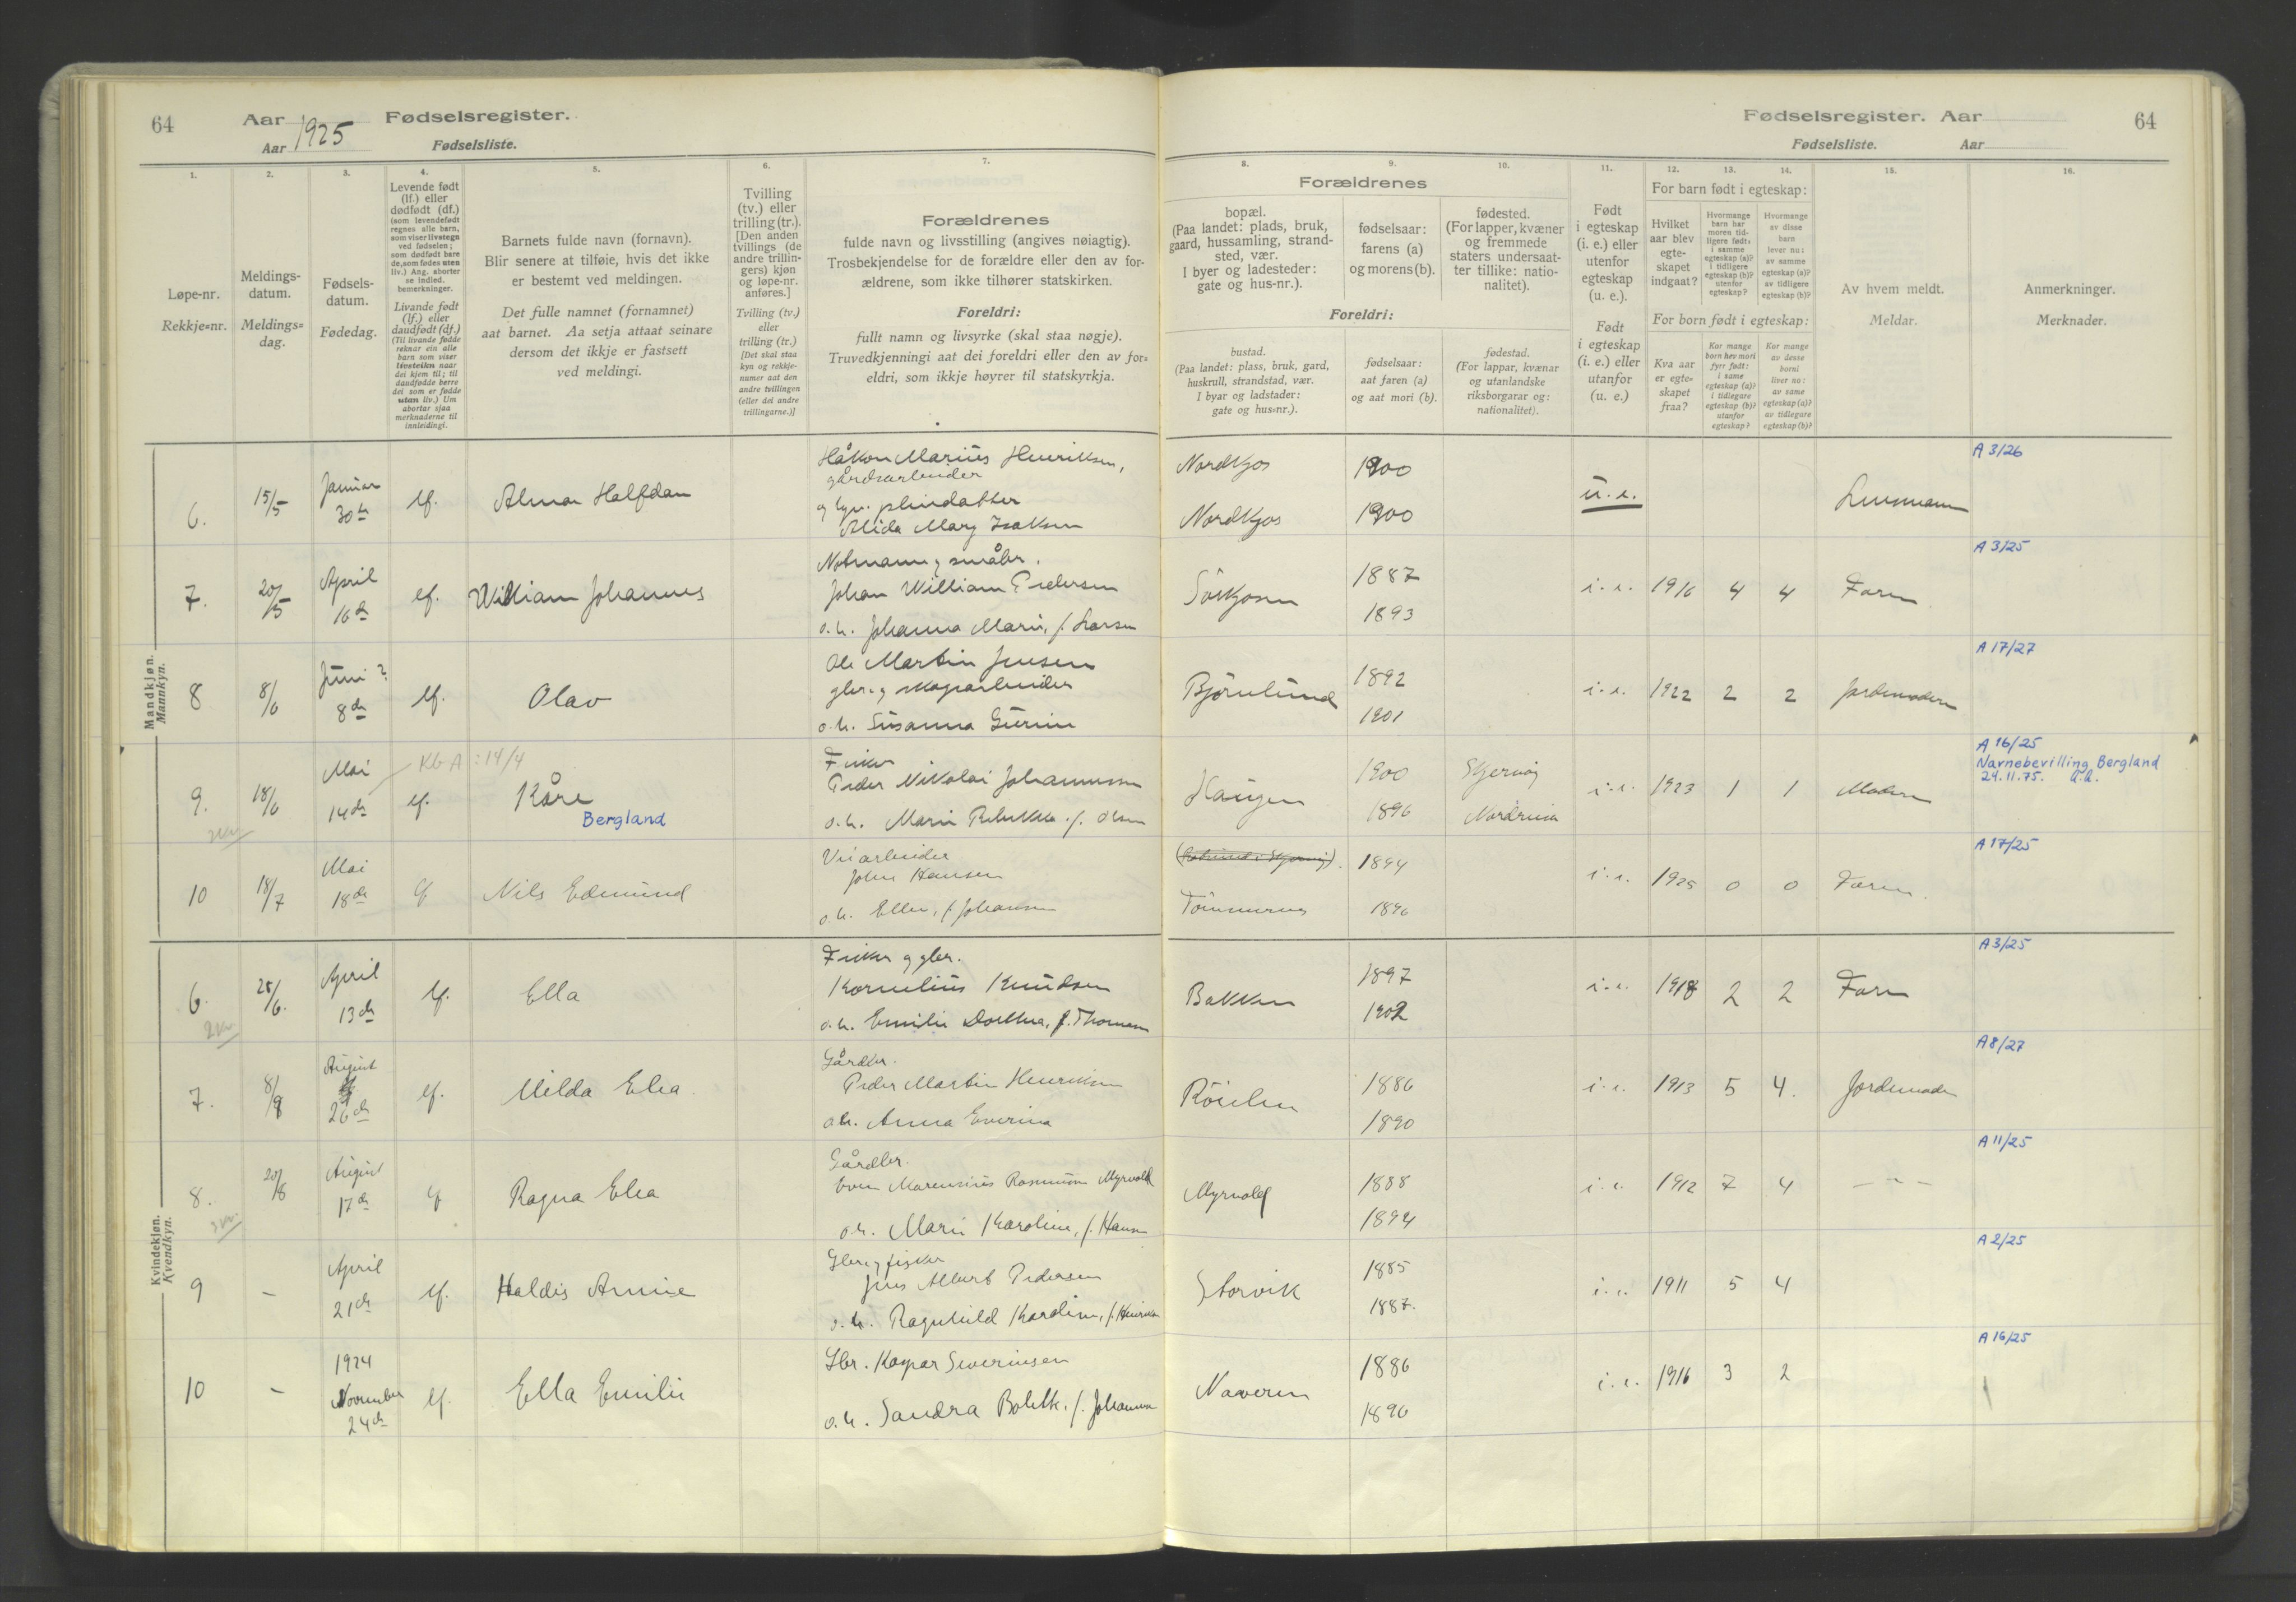 64
Aar 1925
Fødselsregister.
Aar
Fødselsliste.
1.
Løpe-nr.
Rekkje=nr.
2.
Meldings-
datum.
Meldings=
dag.
3.
Fødsels-
datum.
Fødedag.
4.
Levende født
(lf.) eller
dødfødt (df.)
(som levendefødt
regnes alle barn,
som viser livstegn
ved fødselen;
som dødfødt bare
de, som fødes uten
liv.) Ang. aborter
se indled.
bemerkninger.
Livande født
(lf.) eller
daudfødt (df.)
(Til livande fødde
reknar ein alle
barn som viser
livsteikn naar
dei kjem til; til
daudfødde berre
dei som er fødde
utan liv.) Um
abortar sjaa
merknaderne til
innleidingi.
5.
Barnets fulde navn (fornavn).
Blir senere at tilføie, hvis det ikke
er bestemt ved meldingen.
Det fulle namnet (fornamnet)
aat barnet. Aa setja attaat seinare
dersom det ikkje er fastsett
ved meldingi.
6.
Tvilling
(tv.) eller
trilling (tr.).
[Den anden
tvillings (de
andre trillin-
gers) kjøn
og løpe-nr.
anføres.]
Tvilling (tv.)
eller
trilling (tr.)
[Det skal staa
kyn og rekkje-
numer aat den
andre tvillingen
(eller dei andre
trillingarne.)]
7.
Forældrenes
fulde navn og livsstilling (angives nøiagtig).
Trosbekjendelse for de forældre eller den av for-
ældrene, som ikke tilhører statskirken.
Foreldri:
fullt namn og livsyrke (skal staa nøgje).
Truvedkjenningi aat dei foreldri eller den av for=
eldri, som ikkje høyrer til statskyrkja.
Fødselsregister. Aar
64
Fødselsliste. Aar
8.
Forældrenes
bopæl.
(Paa landet: plads, bruk,
gaard, hussamling, strand-
sted, vær.
I byer og ladesteder:
gate og hus-nr.).
Foreldri:
bustad.
(Paa landet: plass, bruk, gard,
huskrull, strandstad, vær.
I byar og ladstader:
gate og hus=nr.).
9.
fødselsaar:
farens (a)
og morens (b).
fødselsaar:
aat faren (a)
og aat mori (b).
10.
fødested.
(For lapper, kvæner
og fremmede
staters undersaat-
ter tillike: natio-
nalitet).
fødestad.
(For lappar, kvænar
og utanlandske
riksborgarar og:
nationalitet).
11.
Født
i egteskap
(i. e.) eller
utenfor
egteskap
(u. e.).
Født
i egteskap
(i. e.) eller
utanfor
(u. e.)
12.
For barn født i egteskap:
Hvilket
aar blev
egte-
skapet
indgaat?
For born født i egteskap:
Kva aar
er egte-
skapet
fraa?
13.
Hvormange
barn har
moren tid-
ligere født:
i samme
egteskap (a)?
i tidligere
egteskap (b)?
utenfor
egteskap?
Kor mange
born hev mori
fyrr født:
i same
egteskap (a)?
i tidlegare
egteskap (b)?
utanfor
egteskap?
14.
Hvormange
av disse
barn
lever nu:
av samme
egteskap (a)?
av tidligere
egteskap (b)?
Kor mange
av desse
borni
liver no:
av same
egteskap (a)?
av tidlegare
egteskap (b)?
15.
Av hvem meldt.
Meldar.
16.
Anmerkninger.
Merknader.
Mandkjøn.
Mannkyn.
6. 15/5 Januar 30te lf. Almar Halfdan
Håkon Marius Henriksen,
gårdsarbeider
Alida Mary Isaksen
Nordkjos 1900 u. e. Lensmann A 3/26
Nordkjos 1900
7. 20/5 April 16de lf. William Johannes
Notmann og småbr.
Johan William Pedersen
o. h. Johanna Marie, f. Larsen
Sörkjosen 1887 1893 i. e. 1916 4 4 Faren A 3/25
8 8/6 Juni? 8de lf. Olav
Ole Martin Jensen
gbr. og skogarbeider
o. h. Susanna Gurine
Björnlund 1892 1901 i. e. 1922 2 2 Jordmoderen A 17/27
9. 18/6 Mai 14de Kb A : 14/4 lf. Kåre
Bergland
Fisker
Peder Nikolai Johannessen
o. h. Marie Rebekka f. Olsen
Haugen 1900 Skjervöy 1896 Nordreisa i. e. 1923 1 1 Moderen
A 16/25
Navnebevilling Bergland
24.11.75.
10 18/7 Mai 18de lf Nils Edmund
Veiarbeider
John Hansen
o. h. Ellen, f. Johansen
1894
Tömmernes 1896 i. e. 1925 0 0 Faren. A 17/25
Kvindekjøn.
Kvendkyn.
6. 25/6. April 13de lf. Ella
Fisker og gbr.
Kornelius Knudsen
o. h. Emilie Dorthea, f. Thomassen
Bakken 1897 1902 i. e. 1918 2 2 Faren A 3/25
7. 8/8 August 26de lf. Milda Elea
Gårdbr.
Peder Martin Henriksen
o h. Anna Everina
Röielen 1886 1890 i. e. 1913 5 4. Jordemoder A 8/27
8. 20/8 August 17de lf Ragna Elea
Gårdbr.
Even Marensius Rasmussen Myrvold
o. h. Marie Karoline, f. Hansen
Myrvold 1888 1894 i. e. 1912 7 4 — " — A 11/25
9 - April 21de lf. Haldis Annie
Gbr. og fisker
Jens Albert Pedersen
o. h. Ragnhild Karoline, f. Henriksen
Storvik 1885 1887. i. e. 1911 5 4 A 2/25
10 - 1924 November 24de lf. Ella Emilie
Gbr. Kaspar Severinsen
o. h. Sandra Bolette, f. Johannessen
Naveren 1886 1890 i. e. 1916 3 2 A 16/25